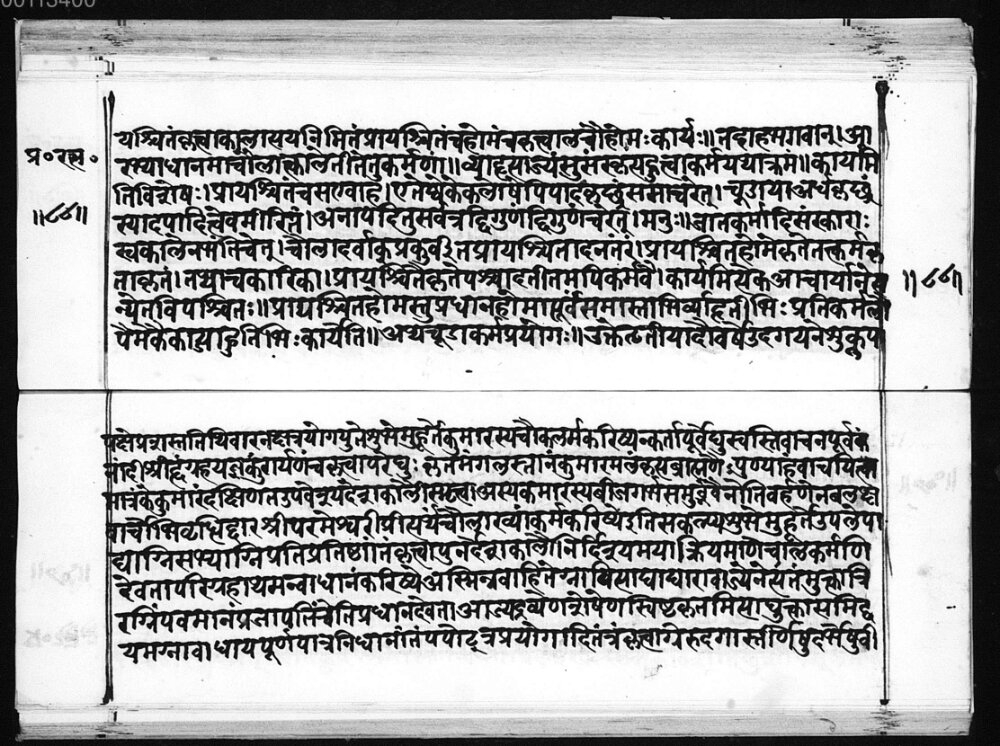 00113400
यश्चितंकृत्वाकालात्ययनिमितंप्रायश्चितंचहोमंचकृत्वालचौहोमःकार्यः॥तदाहभगवान्।आ
प्र॰रत्न॰
रभ्याधानमाचौलात्कालेतीतेतुकर्मणा॥व्याहृत्याज्यंसुसंस्कृत्यहुत्वाकर्मयथाक्रमं॥कार्यमि
॥८८॥
तिविशेषः॥प्रायश्चितंचसएवाह।एतेष्वेकैकलोपेपिपादकृच्छ्रंसमाचरेत्।चूडायाअर्धकृच्छ्रं
स्यादापदित्वेवमीरितं।अनापदितुसर्वत्रद्विगुणंद्विगुणंचरेत्।मनुः॥जातकर्मादिसंस्काराः
स्वकालेनभवंतिचेत्।चौलादर्वाक्प्रकुर्वीतप्रायश्चितादनंतरं।प्रायश्चितेहोमंकृतेतत्कर्मकृ
ताकृतं।तथाचकारिका।प्रायश्चितेकृतेपश्चादतीतमपिकर्मवै।कार्यमित्येकआचार्यानेत्य
॥८८॥
न्येतुविपश्चितः॥प्रायश्चितहोमस्तुप्रधानहोमात्पूर्वंसमास्ताभिर्व्याहृतीभिःप्रतिकर्मलो
पेमेकैकाज्याहुतिभिःकार्येति॥अथचूडाकर्मप्रयोगः॥उक्तेतृतीयादौवर्षेउदगयनेशुक्लप
पक्षेप्रशस्ततिथिवारनक्षत्रयोगयुतेशुभेमुहूर्तेकुमारस्यचौवलर्मकरिष्यन्कर्तापूर्वेद्युःस्वस्तिवाचनपूर्वकं
नांदीश्राद्धंग्रहयज्ञंकुंरार्यणंचकृत्वापरेद्युःकृतमंगलस्नानंकुमारमलंकृत्यब्राह्मणैःपुण्याहंवाचयित्वा
मात्रंकेकुमारंदक्षिणतउपवेश्यदेशकालौस्मृत्वाअस्यकुमारस्यबीजगर्भसमुद्भवैनोनिबर्हणेनबलायु
र्वर्चोभिवृद्धिद्वाराश्रीपरमेश्वरप्रीत्यर्थंचौलाख्यंकर्मकरिष्येइतिसंकल्प्यशुभेमुहूर्तेउपलेपा
द्याग्निसमिध्याग्निप्रतिष्ठांतंकृत्वापुनर्देशकालौनिर्दिश्यमयाक्रियमाणेचौलकर्मणि
देवतापरिग्रहार्थमन्वाधानंकरिष्येअस्मिन्नन्वाहितेग्नावित्याद्याघारावाज्येनेत्यंतंमुक्तात्रि
रग्निंपवमानंप्रजापतिंचेतिप्रधानदेवताआज्यद्रव्येणशेषेणस्विष्टकृतमित्याद्युक्तासमिद्द्व
यमग्नावाधायपूर्णपात्रनिधानांतंपर्यादत्रप्रयोगादितंत्रंकृत्वाग्नेरुदगास्तीर्णेषुदर्भेषुव्री